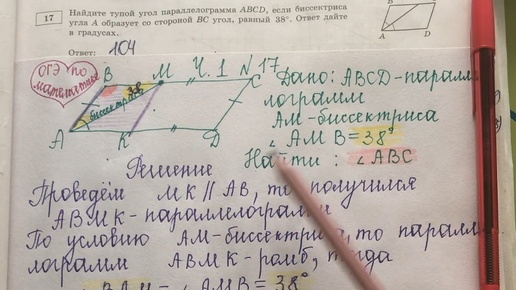 17
Найдите тупой угол параллелограмма ABCD, если биссектриса
угла A образует со стороной BC угол, равный 38°. Ответ дайте
в градусах.
Ответ: 104
B
A
D
ОГЭ по
математике
B
M
Ч.1 №17
C
38
биссектриса
A
K
D
Дано: ABCD-паралле
лограмм
AM-биссектриса
∠AMB=38°
Найти: ∠ABC
Решение
Проведём MK∥AB, то получился
ABMK-параллелограмм
По условию AM-биссектриса, то паралле
лограмм ABMK-ромб, тогда
∠BAM=∠AMB=38°